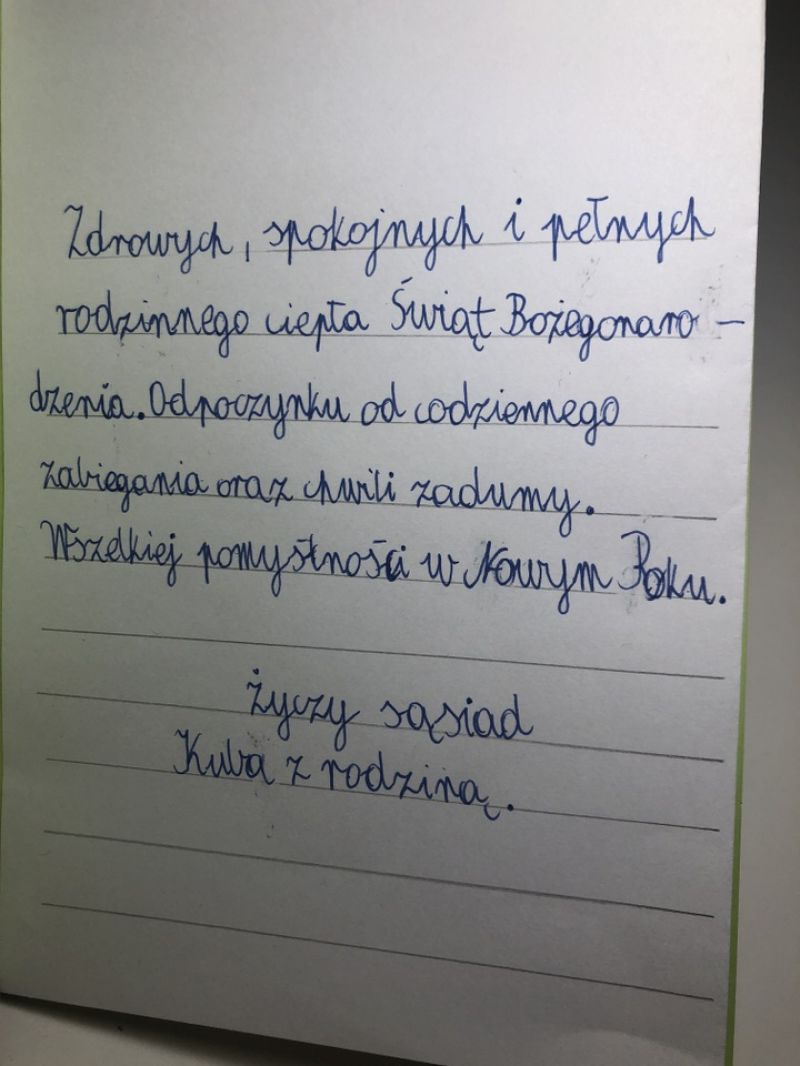 Zdrowych, spokojnych i pełnych
rodzinnego ciepła Świąt Bożegonaro-
dzenia. Odpoczynku od codziennego
zabiegania oraz chwili zadumy.
Wszelkiej pomyślności w Nowym Roku.
życzy sąsiad
Kuba z rodziną.